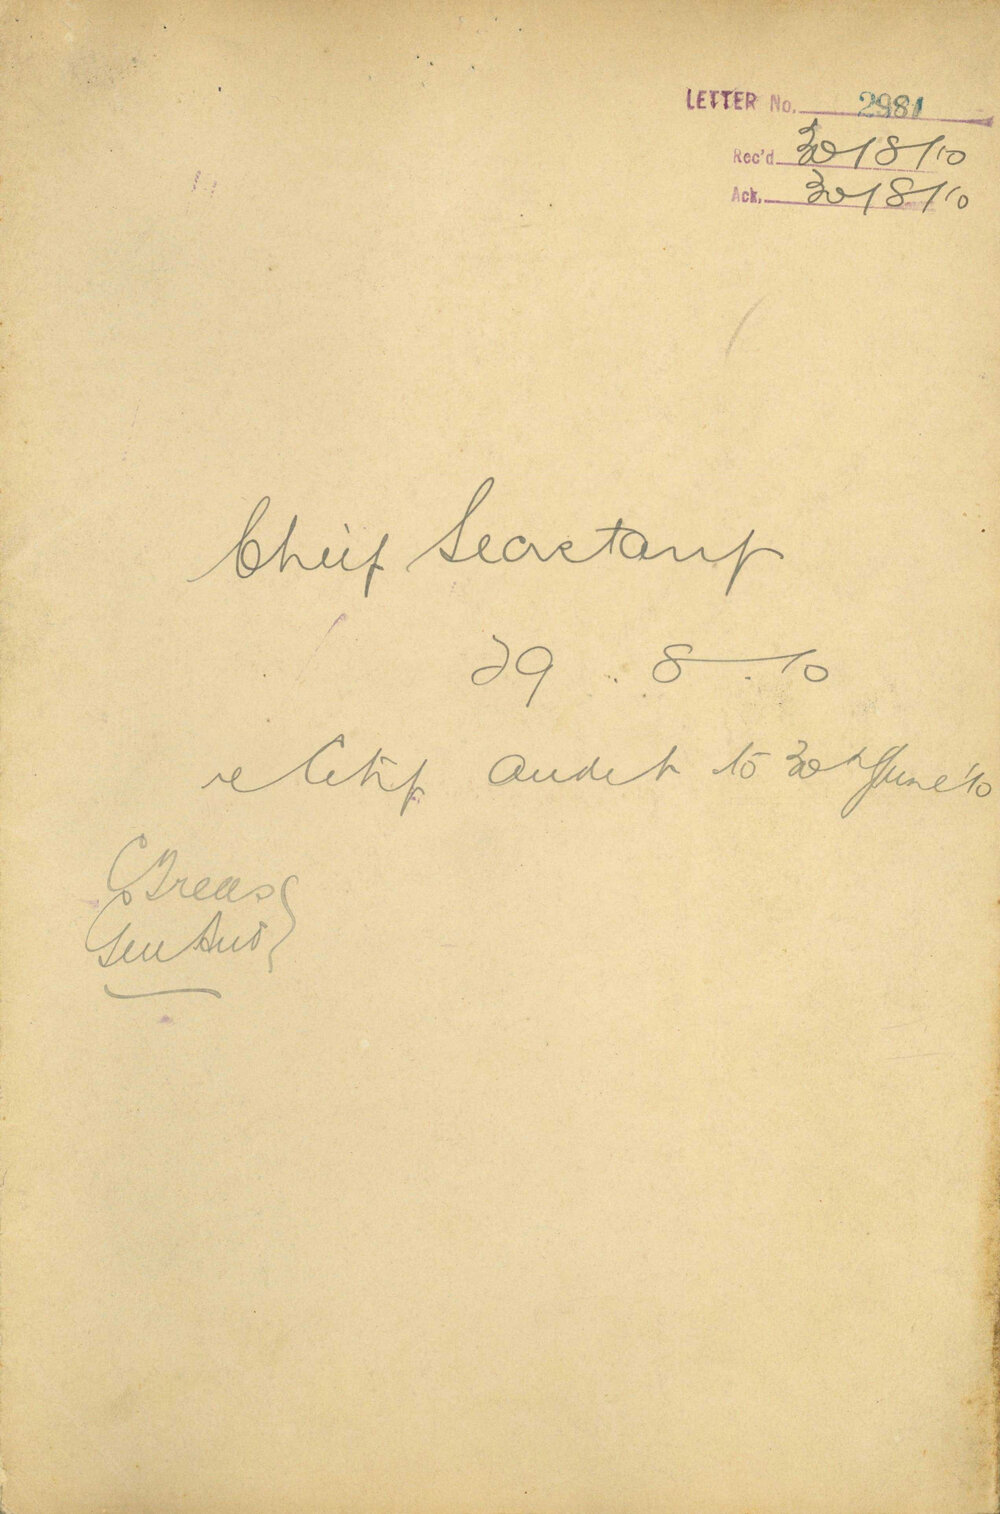 LETTER No. 2981
Rec'd 30/8/10
Ack. 30/8/10
Chief Secretary
29.8.10
re City audit to 30th June '10
C Treas
Gen